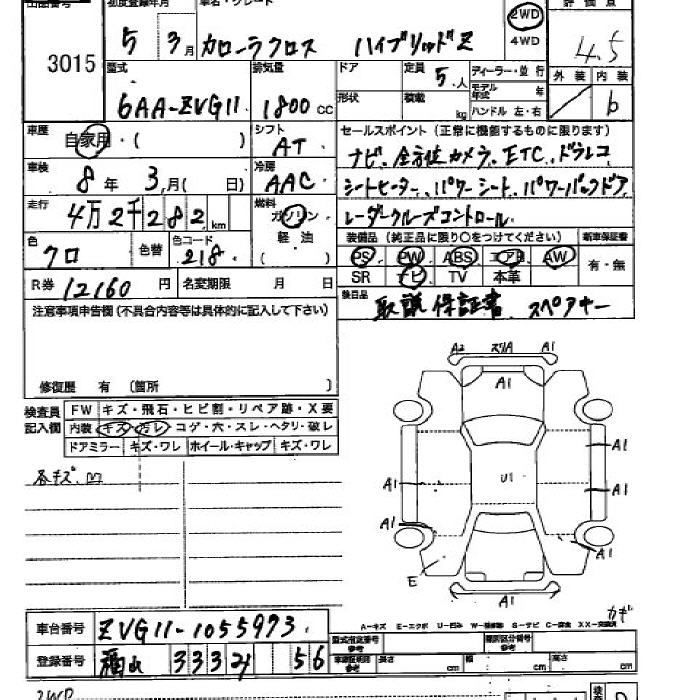 初度登録年月
車名・グレード
評価点
3015
5年 3月
カローラクロス ハイブリッドZ
2WD
4WD
4.5
型式
排気量
ドア
定員 5人
ディーラー・並行
外装 内装
6AA-ZVG11
1800 cc
形状
積載 kg
モデル年式 年
ハンドル 左・右
b
車歴 自家用・( )
シフト AT
セールスポイント (正常に機能するものに限ります)
ナビ、全方位カメラ、ETC、ドラレコ
車検 8年 3月( 日)
冷房 AAC
シートヒーター、パワーシート、パワーバックドア
走行 4万2千282km
燃料 ガソリン 軽油 ( )
レーダークルーズコントロール
色 クロ
色替
色コード 218
装備品 (純正品に限り○をつけてください)
新車保証書
PS PW ABS エアB AW
有・無
SR ナビ TV 本革
R券 12160円
名変期限 月 日
後日品 取説 保証書 スペアキー
注意事項申告欄 (不具合内容等は具体的に記入して下さい)
修復歴 有 〔箇所 〕
検査員記入欄
FW キズ・飛石・ヒビ割・リペア跡・X要
内装 キズ・汚レ・コゲ・穴・スレ・ヘタリ・破レ
ドアミラー キズ・ワレ ホイール・キャップ キズ・ワレ
各キズ
A2 スリA A1
A1
A1
U1
A1
A1
A1
A1
E
A1
カギ
A-キズ E-エクボ U-凹み W-補修跡 S-サビ C-腐食 XX-交換済
車台番号 ZVG11-1055973
型式指定番号 参考
類別区分番号 参考
登録番号 福山 333 56
車庫証明用 参考 長さ cm 幅 cm 高さ cm
2WD